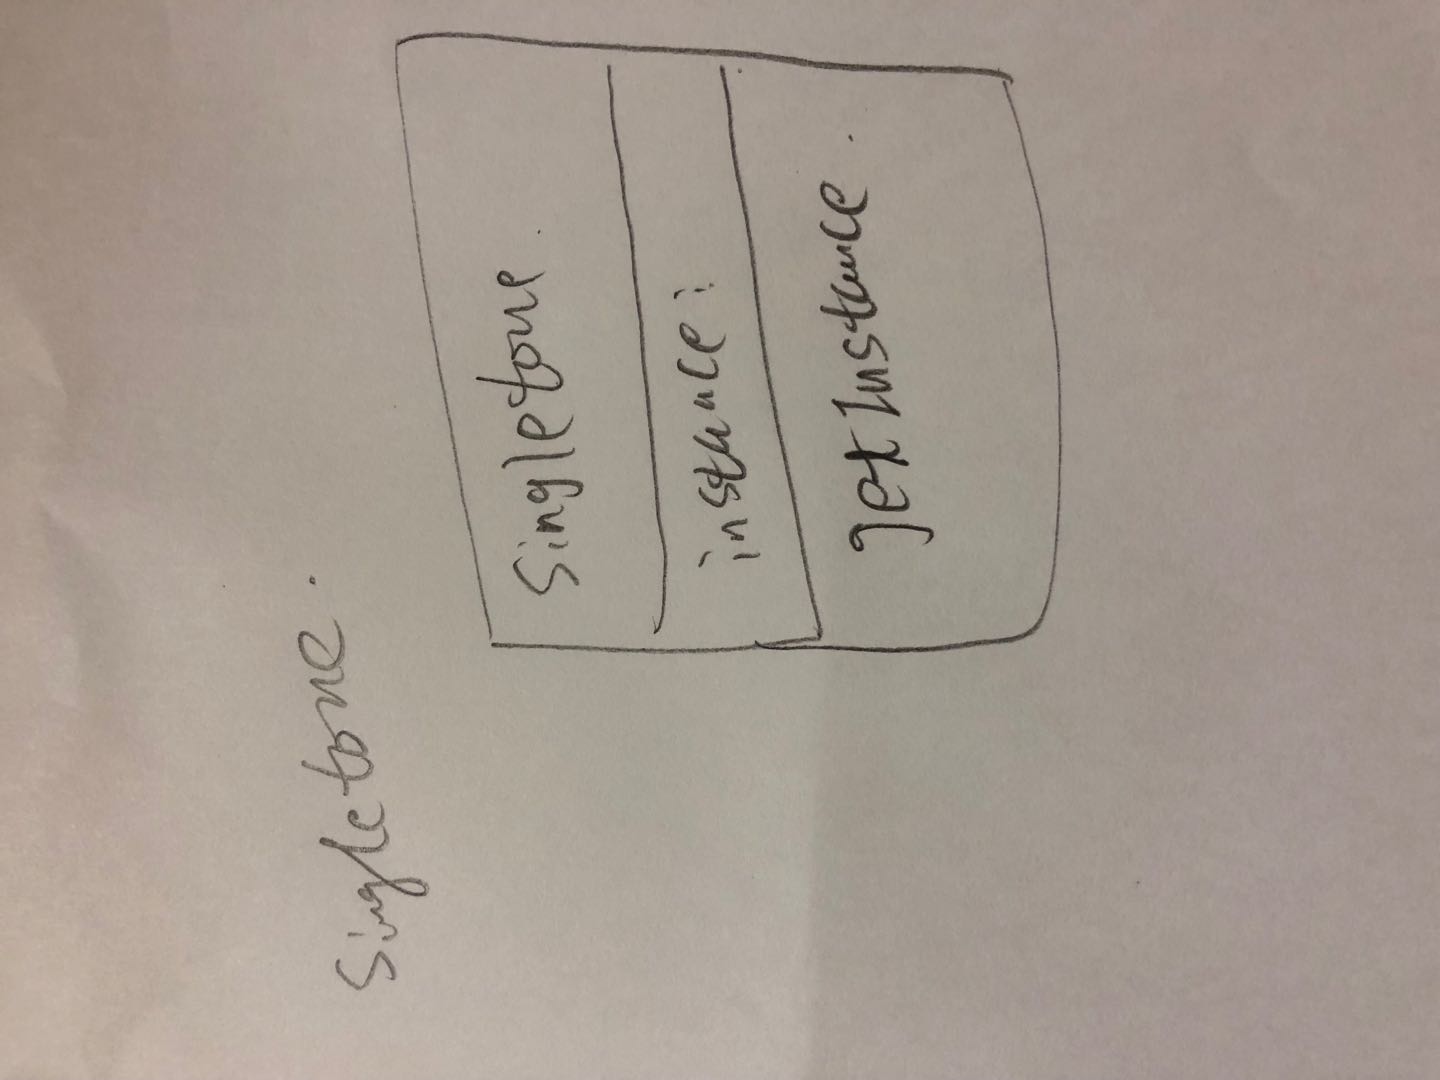 Singletone.
Singletone.
instance:
getInstance.